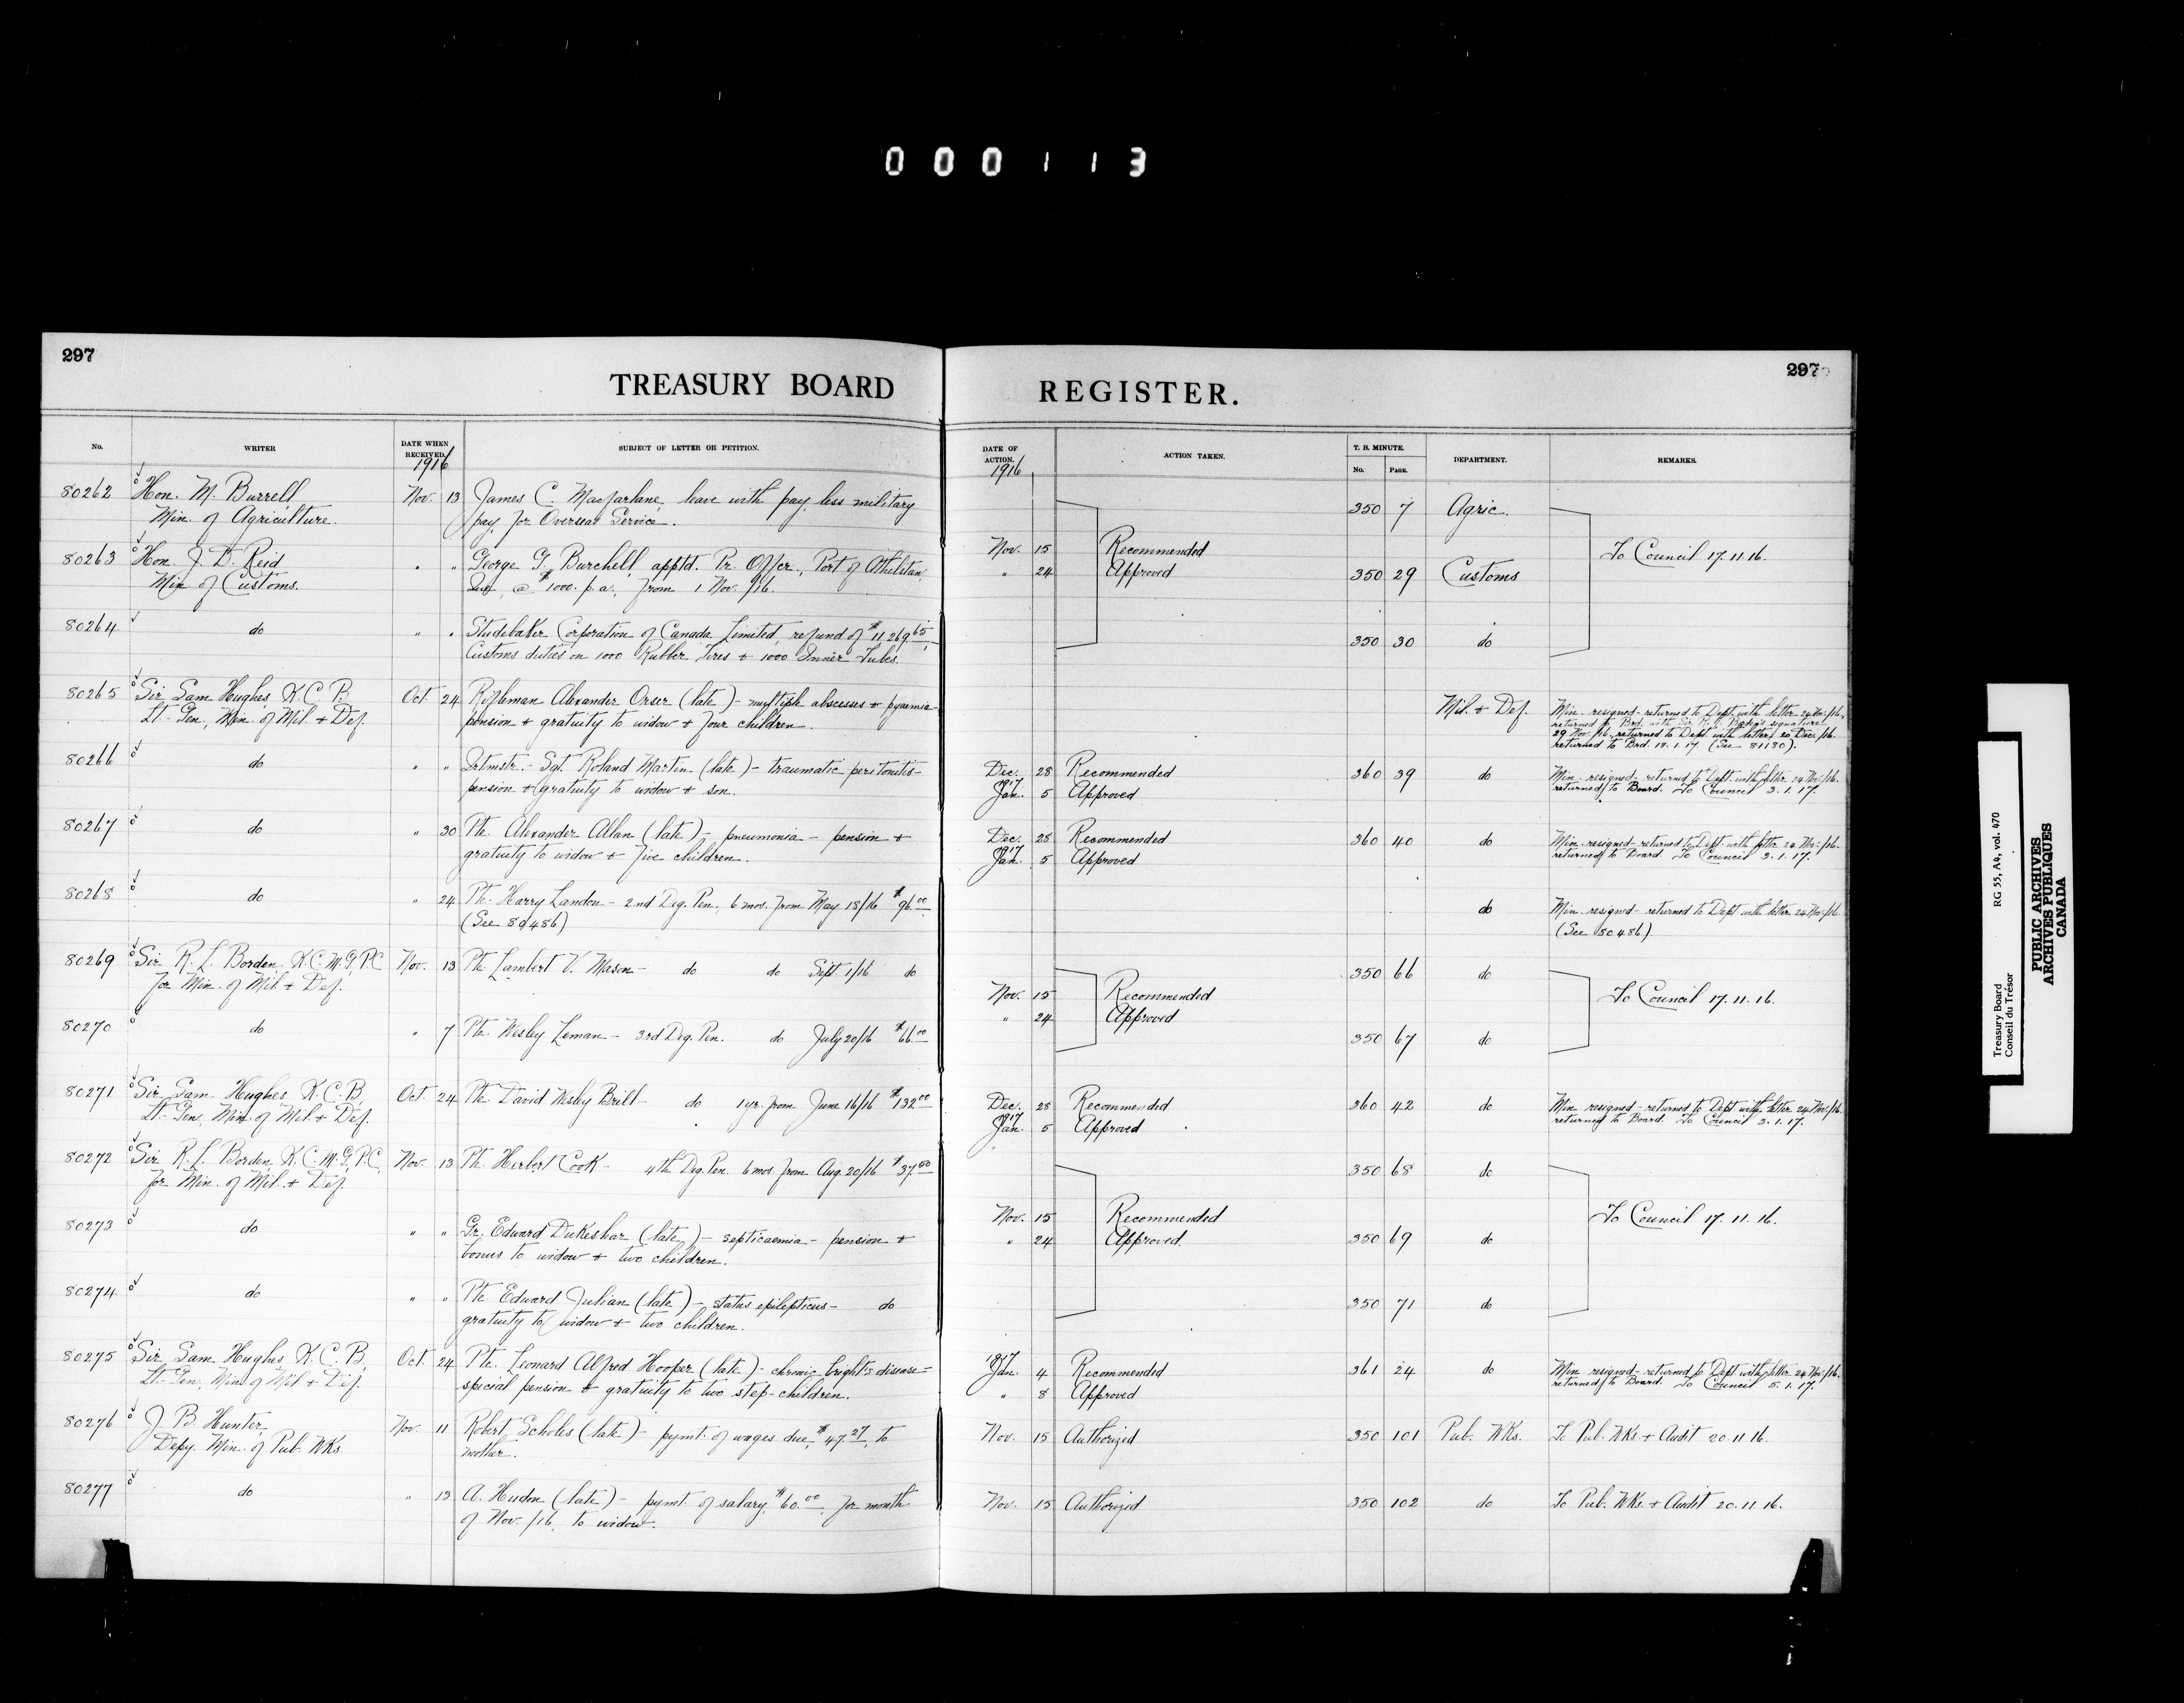 000113
297
297
TREASURY BOARD
REGISTER.
No.
WRITER
DATE WHEN RECEIVED.
1916
SUBJECT OF LETTER OR PETITION.
DATE OF ACTION.
1916
ACTION TAKEN.
T. B. MINUTE.
No.
PAGE.
DEPARTMENT.
REMARKS.
80262 Hon. M. Burrell Nov. 13 James C. Macfarlane, leave with pay, less military 350 7 Agric.
Min. of Agriculture. pay, for Overseas Service.
80263 Hon. J. D. Reid " " George G. Burchell, apptd. Pr. Offcr., Port of Athelstan, Nov. 15 Recommended To Council 17.11.16.
Min. of Customs. Que., @ $1000. p.a., from 1 Nov. /16. " 24 Approved 350 29 Customs
80264 do " " Studebaker Corporation of Canada Limited, refund of $11,269.65, 350 30 do
Customs duties on 1000 Rubber Tires & 1000 Inner Tubes.
80265 Sir Sam Hughes, K.C.B. Oct. 24 Rifleman Alexander Orser (late) - multiple abscesses & pyaemia - Mil. & Def. Min. resigned - returned to Dept. with letter 24 Nov./16,
Lt.-Gen., Min. of Mil. & Def. pension & gratuity to widow & four children. returned to Brd. with Sir R. L. Borden's signature
29 Nov./16. returned to Dept. with letter 20 Dec./16.
returned to Brd. 18.1.17. (See 81180).
80266 do " " Qrtmstr.- Sgt. Roland Martin (late) - traumatic peritonitis - Dec. 28 Recommended 360 39 do Min. resigned - returned to Dept. with letter 24 Nov./16.
pension & gratuity to widow & son. 1917 Jan. 5 Approved returned to Board. To Council 3.1.17.
80267 do " 30 Pte. Alexander Allan (late) - pneumonia - pension & Dec. 28 Recommended 360 40 do Min. resigned - returned to Dept. with letter 24 Nov./16.
gratuity to widow & five children. 1917 Jan. 5 Approved returned to Board. To Council 3.1.17.
80268 do " 24 Pte. Harry Landon - 2nd Deg. Pen., 6 mos. from May 18/16 $96.00 do Min. resigned - returned to Dept. with letter 24 Nov./16.
(See 80486) (See 80486)
80269 Sir R. L. Borden, K.C.M.G., P.C. Nov. 13 Pte. Lambert V. Mason - do do Sept. 1/16 do 350 66 do
for Min. of Mil. & Def. Nov. 15 Recommended To Council 17.11.16.
" 24 Approved
80270 do " 7 Pte. Wesley Leman - 3rd Deg. Pen. do July 20/16 $66.00 350 67 do
80271 Sir Sam Hughes, K.C.B., Oct. 24 Pte. David Wesley Brill - do 1 yr. from June 16/16 $132.00 Dec. 28 Recommended 360 42 do Min. resigned - returned to Dept. with letter 24 Nov./16.
Lt.-Gen., Min. of Mil. & Def. 1917 Jan. 5 Approved returned to Board. To Council 3.1.17.
80272 Sir R. L. Borden, K.C.M.G., P.C. Nov. 13 Pte. Herbert Cook - 4th Deg. Pen. 6 mos. from Aug. 20/16 $37.50 350 68 do
for Min. of Mil. & Def. Nov. 15 Recommended To Council 17.11.16.
80273 do " " Gr. Edward Dukeshar (late) - septicaemia - pension & " 24 Approved. 350 69 do
bonus to widow & two children.
80274 do " " Pte. Edward Julian (late) - status epilepticus - do 350 71 do
gratuity to widow & two children.
80275 Sir Sam Hughes, K.C.B., Oct. 24 Pte. Leonard Alfred Hooper (late) - chronic bright's disease - 1917 Jan. 4 Recommended 361 24 do Min. resigned - returned to Dept. with letter 24 Nov./16.
Lt.-Gen., Min. of Mil. & Def. special pension & gratuity to two step-children. " 8 Approved returned to Board. To Council 5.1.17.
80276 J. B. Hunter, Nov. 11 Robert Scholes (late) - pymt. of wages due, $47.27, to Nov. 15 Authorized 350 101 Pub. Wks. To Pub. Wks. & Audit 20.11.16.
Depy. Min. of Pub. Wks. mother.
80277 do " 13 A. Hudon (late) - pymt. of salary, $60.00, for month Nov. 15 Authorized 350 102 do To Pub. Wks. & Audit 20.11.16.
of Nov. /16, to widow.
Treasury Board RG 55, A4, vol. 470
Conseil du Trésor
PUBLIC ARCHIVES
ARCHIVES PUBLIQUES
CANADA